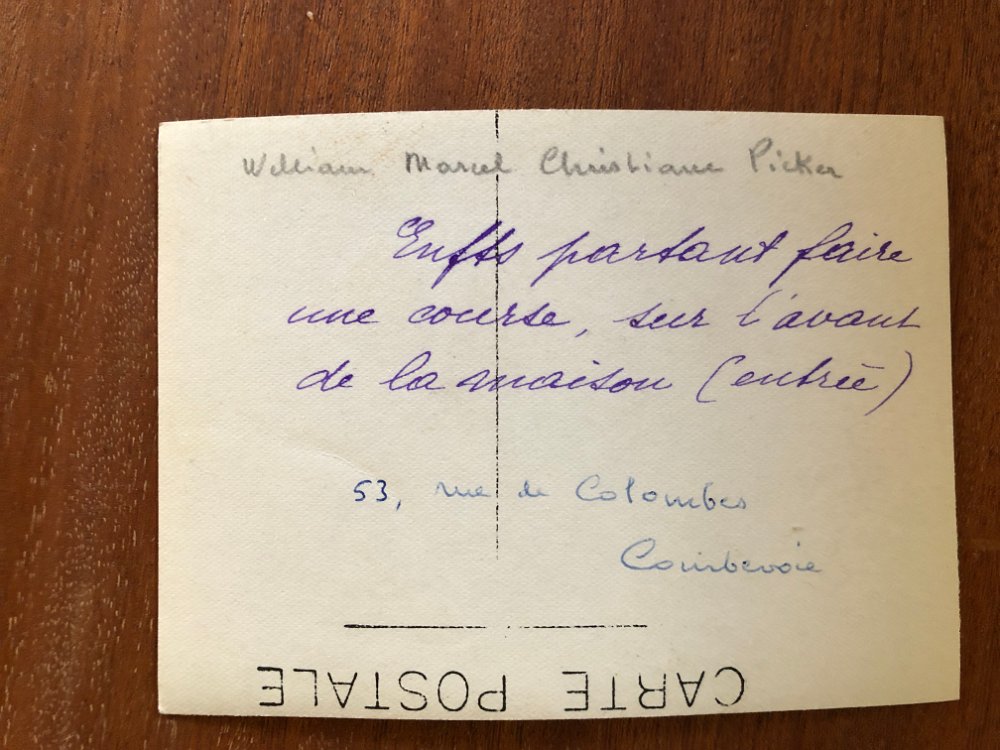 William Marcel Christiane Picker
Enfts partant faire
une course, sur l'avant
de la maison (entrée)
53, rue de Colombes
Courbevoie
CARTE POSTALE